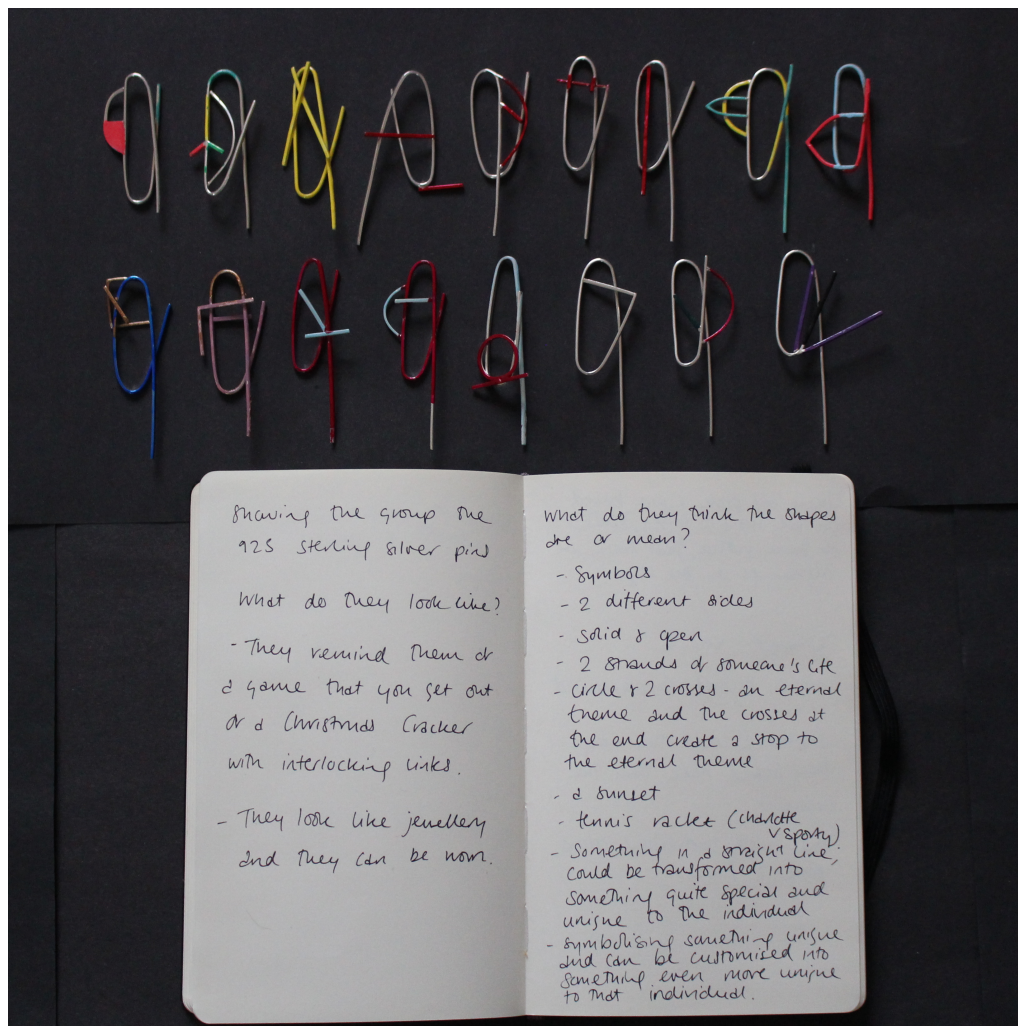 Showing the group the
925 sterling silver pins
What do they look like?
- They remind them of
a game that you get out
of a Christmas Cracker
with interlocking links.
- They look like jewellery
and they can be worn.
What do they think the shapes
are or mean?
- Symbols
- 2 different sides
- solid & open
- 2 strands of someone's life
- circle & 2 crosses - an eternal
theme and the crosses at
the end create a stop to
the eternal theme
- a sunset
- tennis racket (Charlotte
v sporty)
- Something in a straight line,
could be transformed into
something quite special and
unique to the individual
- symbolising something unique
and can be customised into
something even more unique
to that individual.